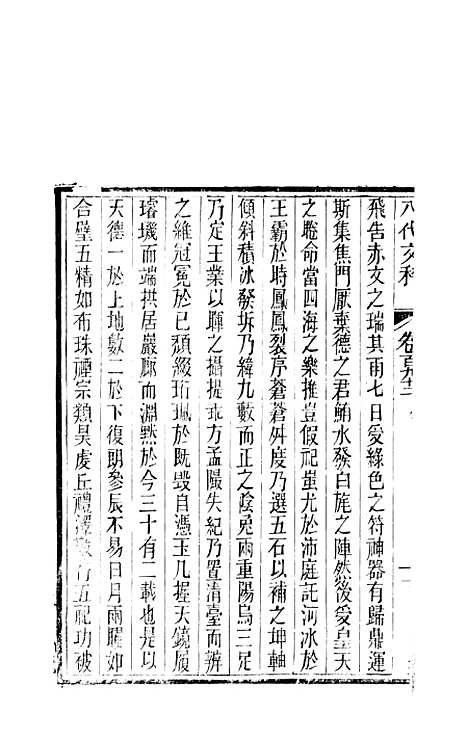 八代文粹
飛告赤文之瑞其雨七日爰綠色之符神器有歸鼎運
斯集焦門厭棄德之君鮪水發白旄之陣然後爰皇天
之睠命當四海之樂推豈假祀蚩尤於沛庭託河冰於
王霸於時鳳鳳裂序蒼蒼舛度乃選五石以補之坤軸
傾斜積冰發坼乃緯九數而正之陰兔兩重陽烏三足
乃定王業以暉之攝提乖方孟陬失紀乃置清臺而辨
之維冠冕於已頹綴珩珮於旣毀自憑玉几握天鏡履
璿璣而端拱居巖廊而淵默於今三十有二載也是以
天德一於上地數二於下復朗參辰不易日月兩曜如
合璧五精如布珠禋宗類昊虔丘禮澤 行五配功被